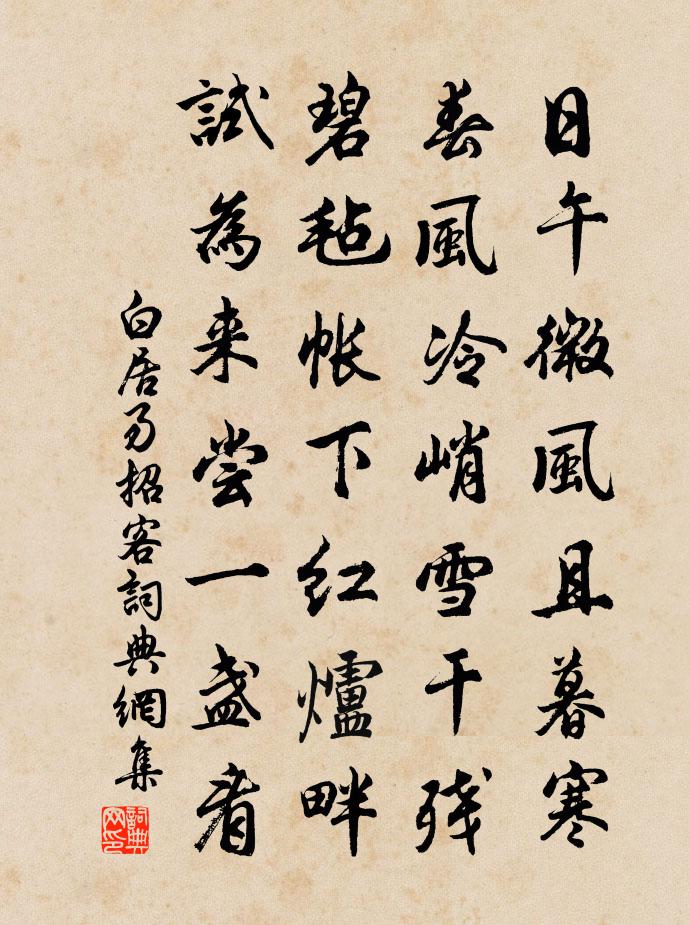 日午微風且暮寒
春風冷峭雪干残
碧毡帐下红爐畔
試為来尝一盏看
白居易招客詞典網集
詞典网印